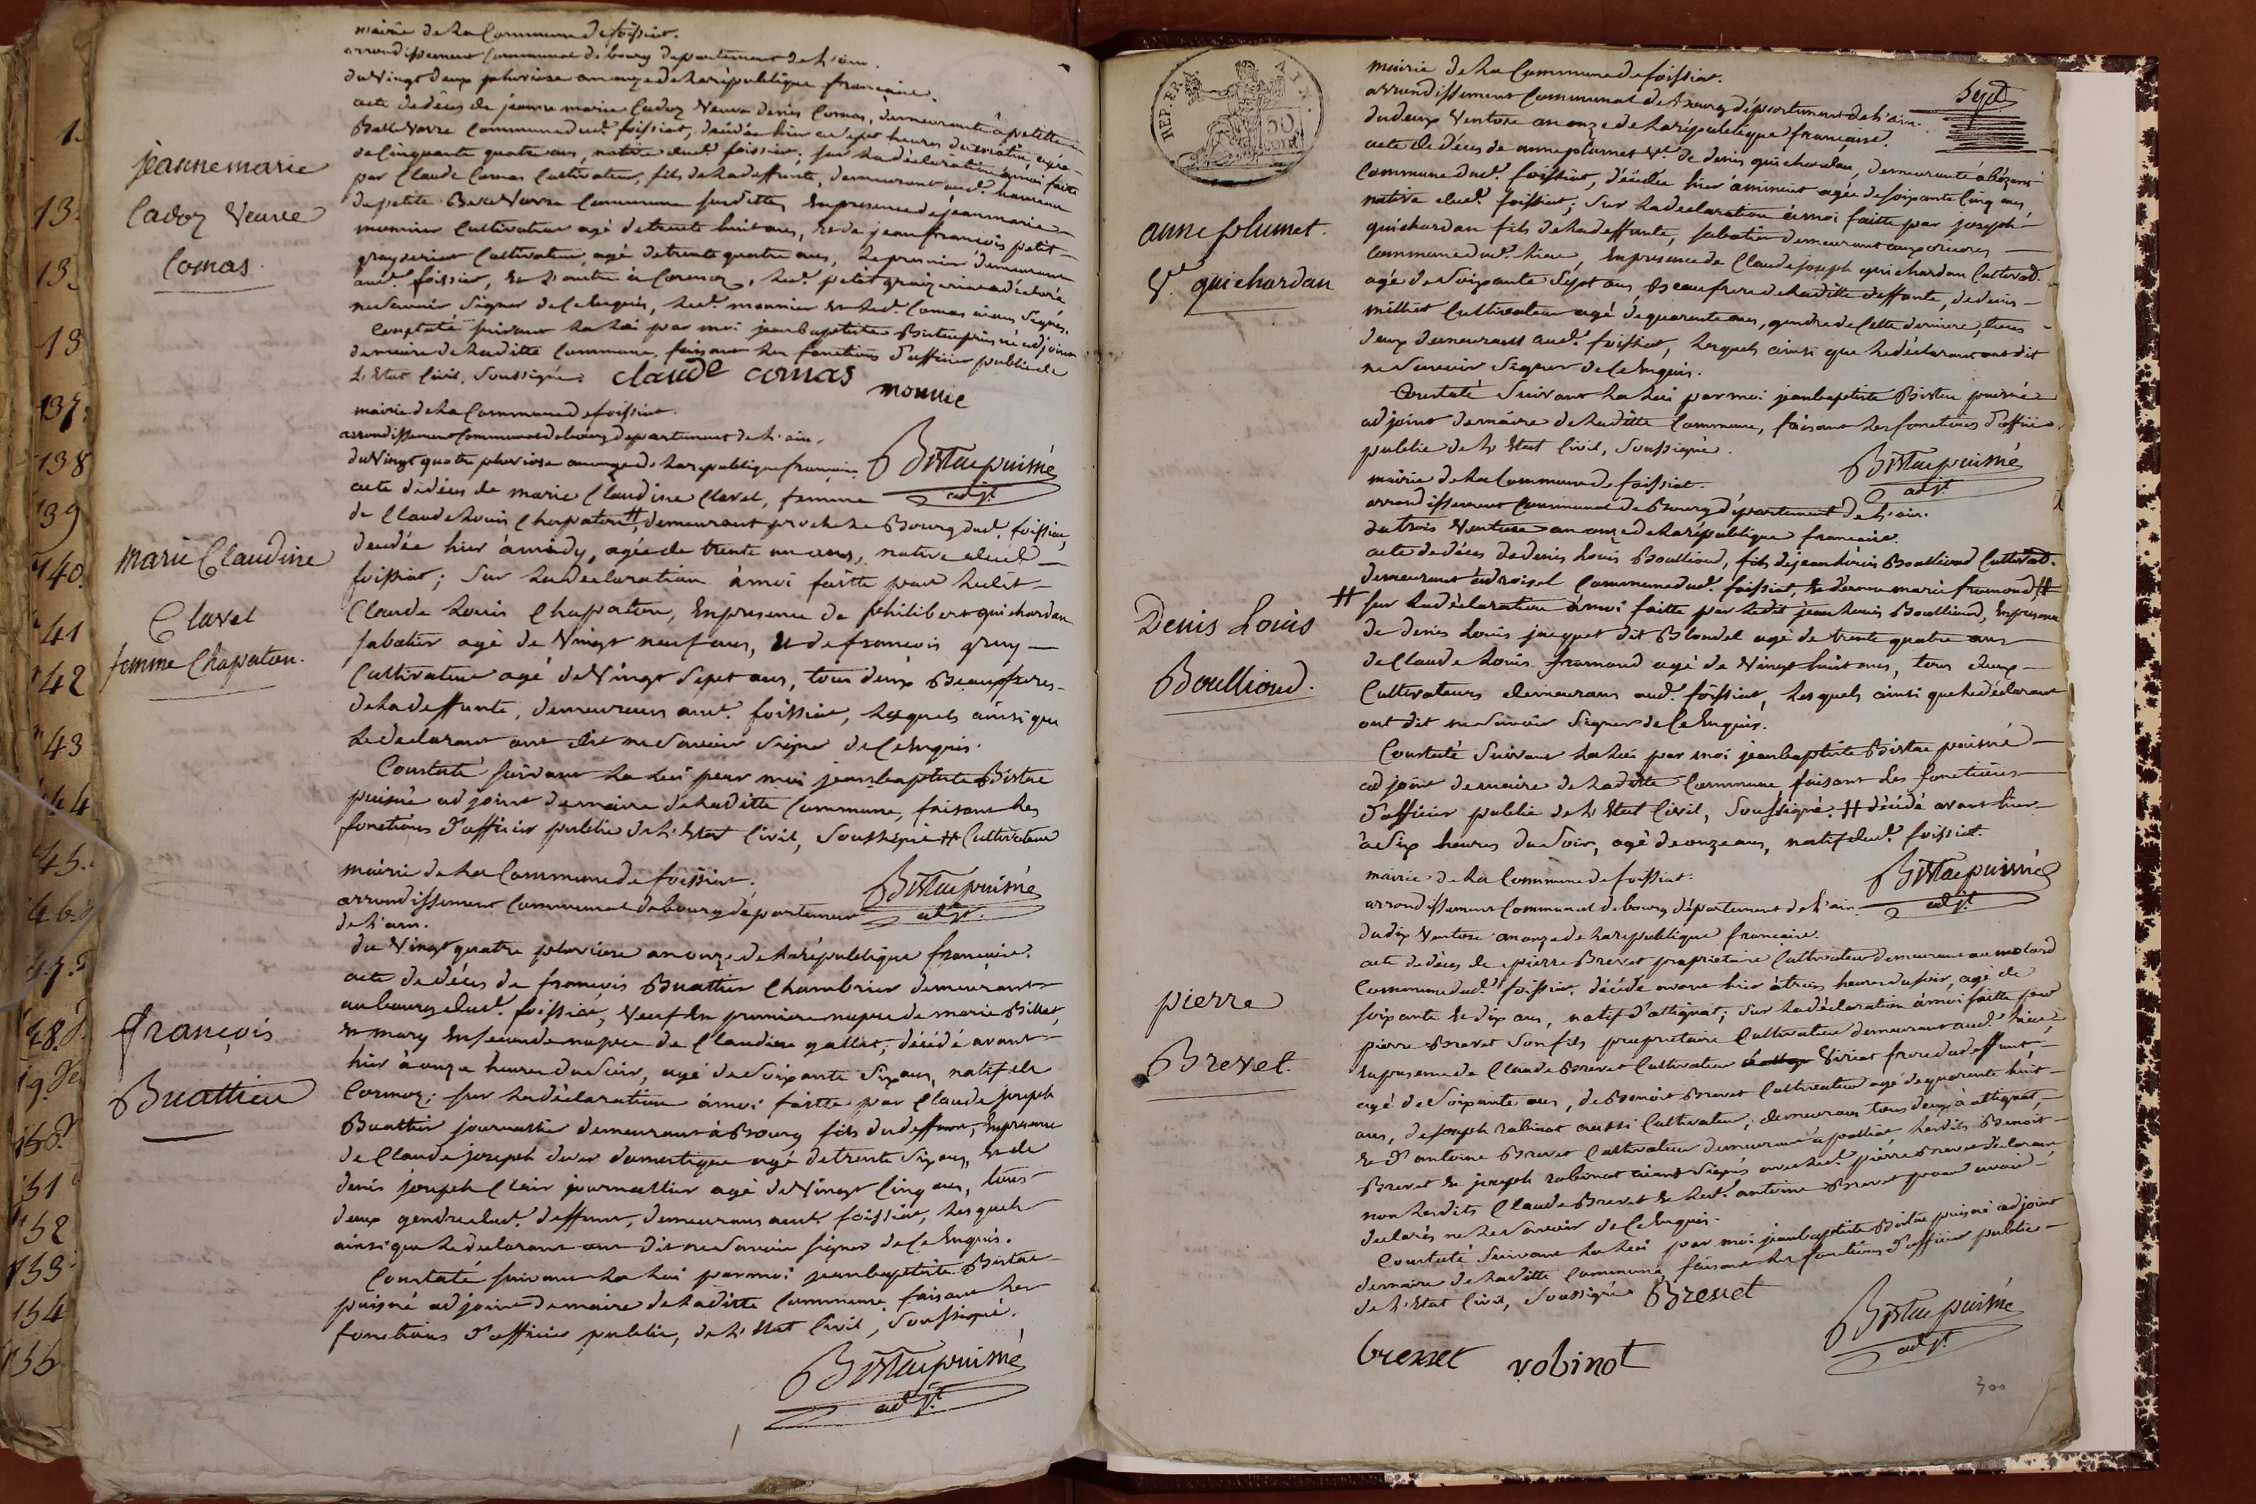 1.
13.
13.
13
137.
138
139
140.
141
142
143
144
145.
146.
147.
148.
149.
150.
151
152
153
154
155
jeanne marie
Cadoz Veuve
Comas.
mairie de la Commune de foissiat.
arrondissement Communal de bourg departement de l'ain.
du Vingt deux pluviose an onze de la république française.
acte de décès de jeanne marie Cadoz Veuve denis Comas, demeurante à petitte
Commune dud.t foissiat, décédée hier à sept heures du matin, agée
de Cinquante quatre ans, native dud.t foissiat; sur la déclaration à moi faite
par Claude Comas Cultivateur, fils de la deffunte, demeurant aud.t hameau
de petite Commune susditte, En presence de jean marie
monnier Cultivateur agé de trente huit ans, et de jean françois petit
Cultivateur, agé de trente quatre ans, le premier demeurant
aud.t foissiat, et l'autre à Cormoz, led.t petit a déclaré
ne savoir signer de Ce Enquis, led.t monnier et led.t Comas aiant signés.
Constaté suivant la loi par moi jean baptiste Bistac puisné adjoint
de maire de laditte Commune, faisant les fonctions d'officier public de
l'Etat Civil, soussigné. claude comas
monnie
Bistac puisné
adj.t
Marie Claudine
Clavel
femme Chapaton.
mairie de la Commune de foissiat.
arrondissement Communal de bourg departement de l'ain.
du Vingt quatre pluviose an onze de la republique française
acte de décès de marie Claudine Clavel, femme
de Claude Louis Chapaton #, demeurant proche le Bourg dud.t foissiat,
decedée hier à midy, agée de trente un ans, native dud.t
foissiat; sur la Declaration à moi faitte par ledit
Claude Louis Chapaton, En presence de philibert quichardan
sabatier agé de Vingt neuf ans, et de francois gruy
Cultivateur agé de Vingt Sept ans, tous deux Beaux freres
de la deffunte, demeurans aud.t foissiat, lesquels ainsi que
le declarant ont dit ne savoir signer de Ce Enquis.
Constaté suivant la loi par moi jean baptiste Bistac
puisné adjoint de maire de laditte Commune, faisant les
fonctions d'officier public de l'Etat Civil, soussigné # Cultivateur
Bistac puisné
adj.t
françois
Buattier
mairie de la Commune de foissiat.
arrondissement Communal de bourg département
de l'ain.
du Vingt quatre pluviose an onze de la république française.
acte de décès de françois Buattier Chambrier demeurant
au bourg dud.t foissiat, Veuf En premiere nopce de marie Billet,
En mary En seconde nopce de Claudine gallet, décédé avant
hier à onze heures du Soir, agé de Soixante Six ans, natif de
Cormoz; sur la déclaration à moi faitte par Claude joseph
Buattier journallier demeurant à Bourg fils du deffunt, En presence
de Claude joseph domestique agé de trente Six ans, et de
denis joseph Clair journallier agé de Vingt Cinq ans, tous
deux gendre dud.t deffunt, demeurans aud.t foissiat, lesquels
ainsi que le declarant ont dit ne savoir signer de Ce Enquis.
Constaté suivant la loi par moi jean baptiste Bistac
puisné adjoint de maire de laditte Commune, faisant les
fonctions d'officier public, de l'Etat Civil, soussigné.
Bistac puisné
adj.t
REP. FRA
50
Sept
anne plumet.
V.e quichardan
mairie de la Commune de foissiat.
arrondissement Communal de bourg département de l'ain.
du deux Ventose an onze de la république française.
acte de décès de anne plumet V.e de denis quichardan, demeurante à
Commune dud.t foissiat, décédée hier à minuit agée de soixante Cinq ans,
native dud.t foissiat; sur la declaration à moi faitte par joseph
quichardan fils de la deffunte, sabatier demeurant
Commune dud.t lieu, En presence de Claude joseph quichardan Cultivat.
agé de Soixante Sept ans, Beau frere de laditte deffunte, de denis
milliet Cultivateur agé de quarante ans, gendre de Cette derniere, tous
deux demeurants aud.t foissiat, lesquels ainsi que le déclarant ont dit
ne Savoir Signer de Ce Enquis.
Constaté Suivant la loi par moi jean baptiste Bistac puisné
adjoint de maire de laditte Commune, faisant les fonctions d'officier
public de l'Etat Civil, soussigné.
Bistac puisné
adj.t
Denis Louis
Boullioud.
mairie de la Commune de foissiat.
arrondissement Communal de Bourg département de l'ain.
du trois Ventose an onze de la république française.
acte de décès de denis Louis Boullioud, fils de jean Louis Boullioud Cultivat.
demeurant Commune dud.t foissiat, et de anne marie fromond #
# sur la déclaration à moi faitte par ledit jean Louis Boullioud, En presence
de denis Louis jacquet dit Blondel agé de trente quatre ans
de Claude Louis fromond agé de Vingt huit ans, tous deux
Cultivateurs demeurans aud.t foissiat, lesquels ainsi que le déclarant
ont dit ne savoir signer de Ce Enquis.
Constaté Suivant la loi par moi jean baptiste Bistac puisné
adjoint de maire de laditte Commune faisant les fonctions
d'officier public de l'Etat Civil, soussigné. # décédé avant hier
à Six heures du Soir, agé de onze ans, natif dud.t foissiat.
Bistac puisné
adj.t
pierre
Brevet.
mairie de la Commune de foissiat.
arrondissement Communal de bourg département de l'ain
du dix Ventose an onze de la republique française.
acte de décès de pierre Brevet proprietaire Cultivateur demeurant au molard
Commune dud.t foissiat, décédé avant hier à trois heures du soir, agé de
soixante et dix ans, natif d'attignat; sur la déclaration à moi faitte par
pierre Brevet son fils proprietaire Cultivateur demeurant aud.t lieu,
En presence de Claude Brevet Cultivateur Viriat frere dud.t deffunt,
agé de Soixante ans, de Benoit Brevet Cultivateur agé de quarante huit
ans, de joseph robinot aussi Cultivateur, demeurans tous deux à attignat,
et d'antoine Brevet Cultivateur demeurant à polliat, lesdits Benoit
Brevet et joseph robinot aiant signés avec led.t pierre Brevet déclarant
non lesdits Claude Brevet et led.t antoine Brevet pour avoir
declarés ne le Savoir de Ce Enquis.
Constaté Suivant la loi par moi jean baptiste Bistac puisné adjoint
de maire de laditte Commune faisant les fonctions d'officier public
de l'Etat Civil, soussigné Brevet
brevet robinot
Bistac puisné
adj.t
300